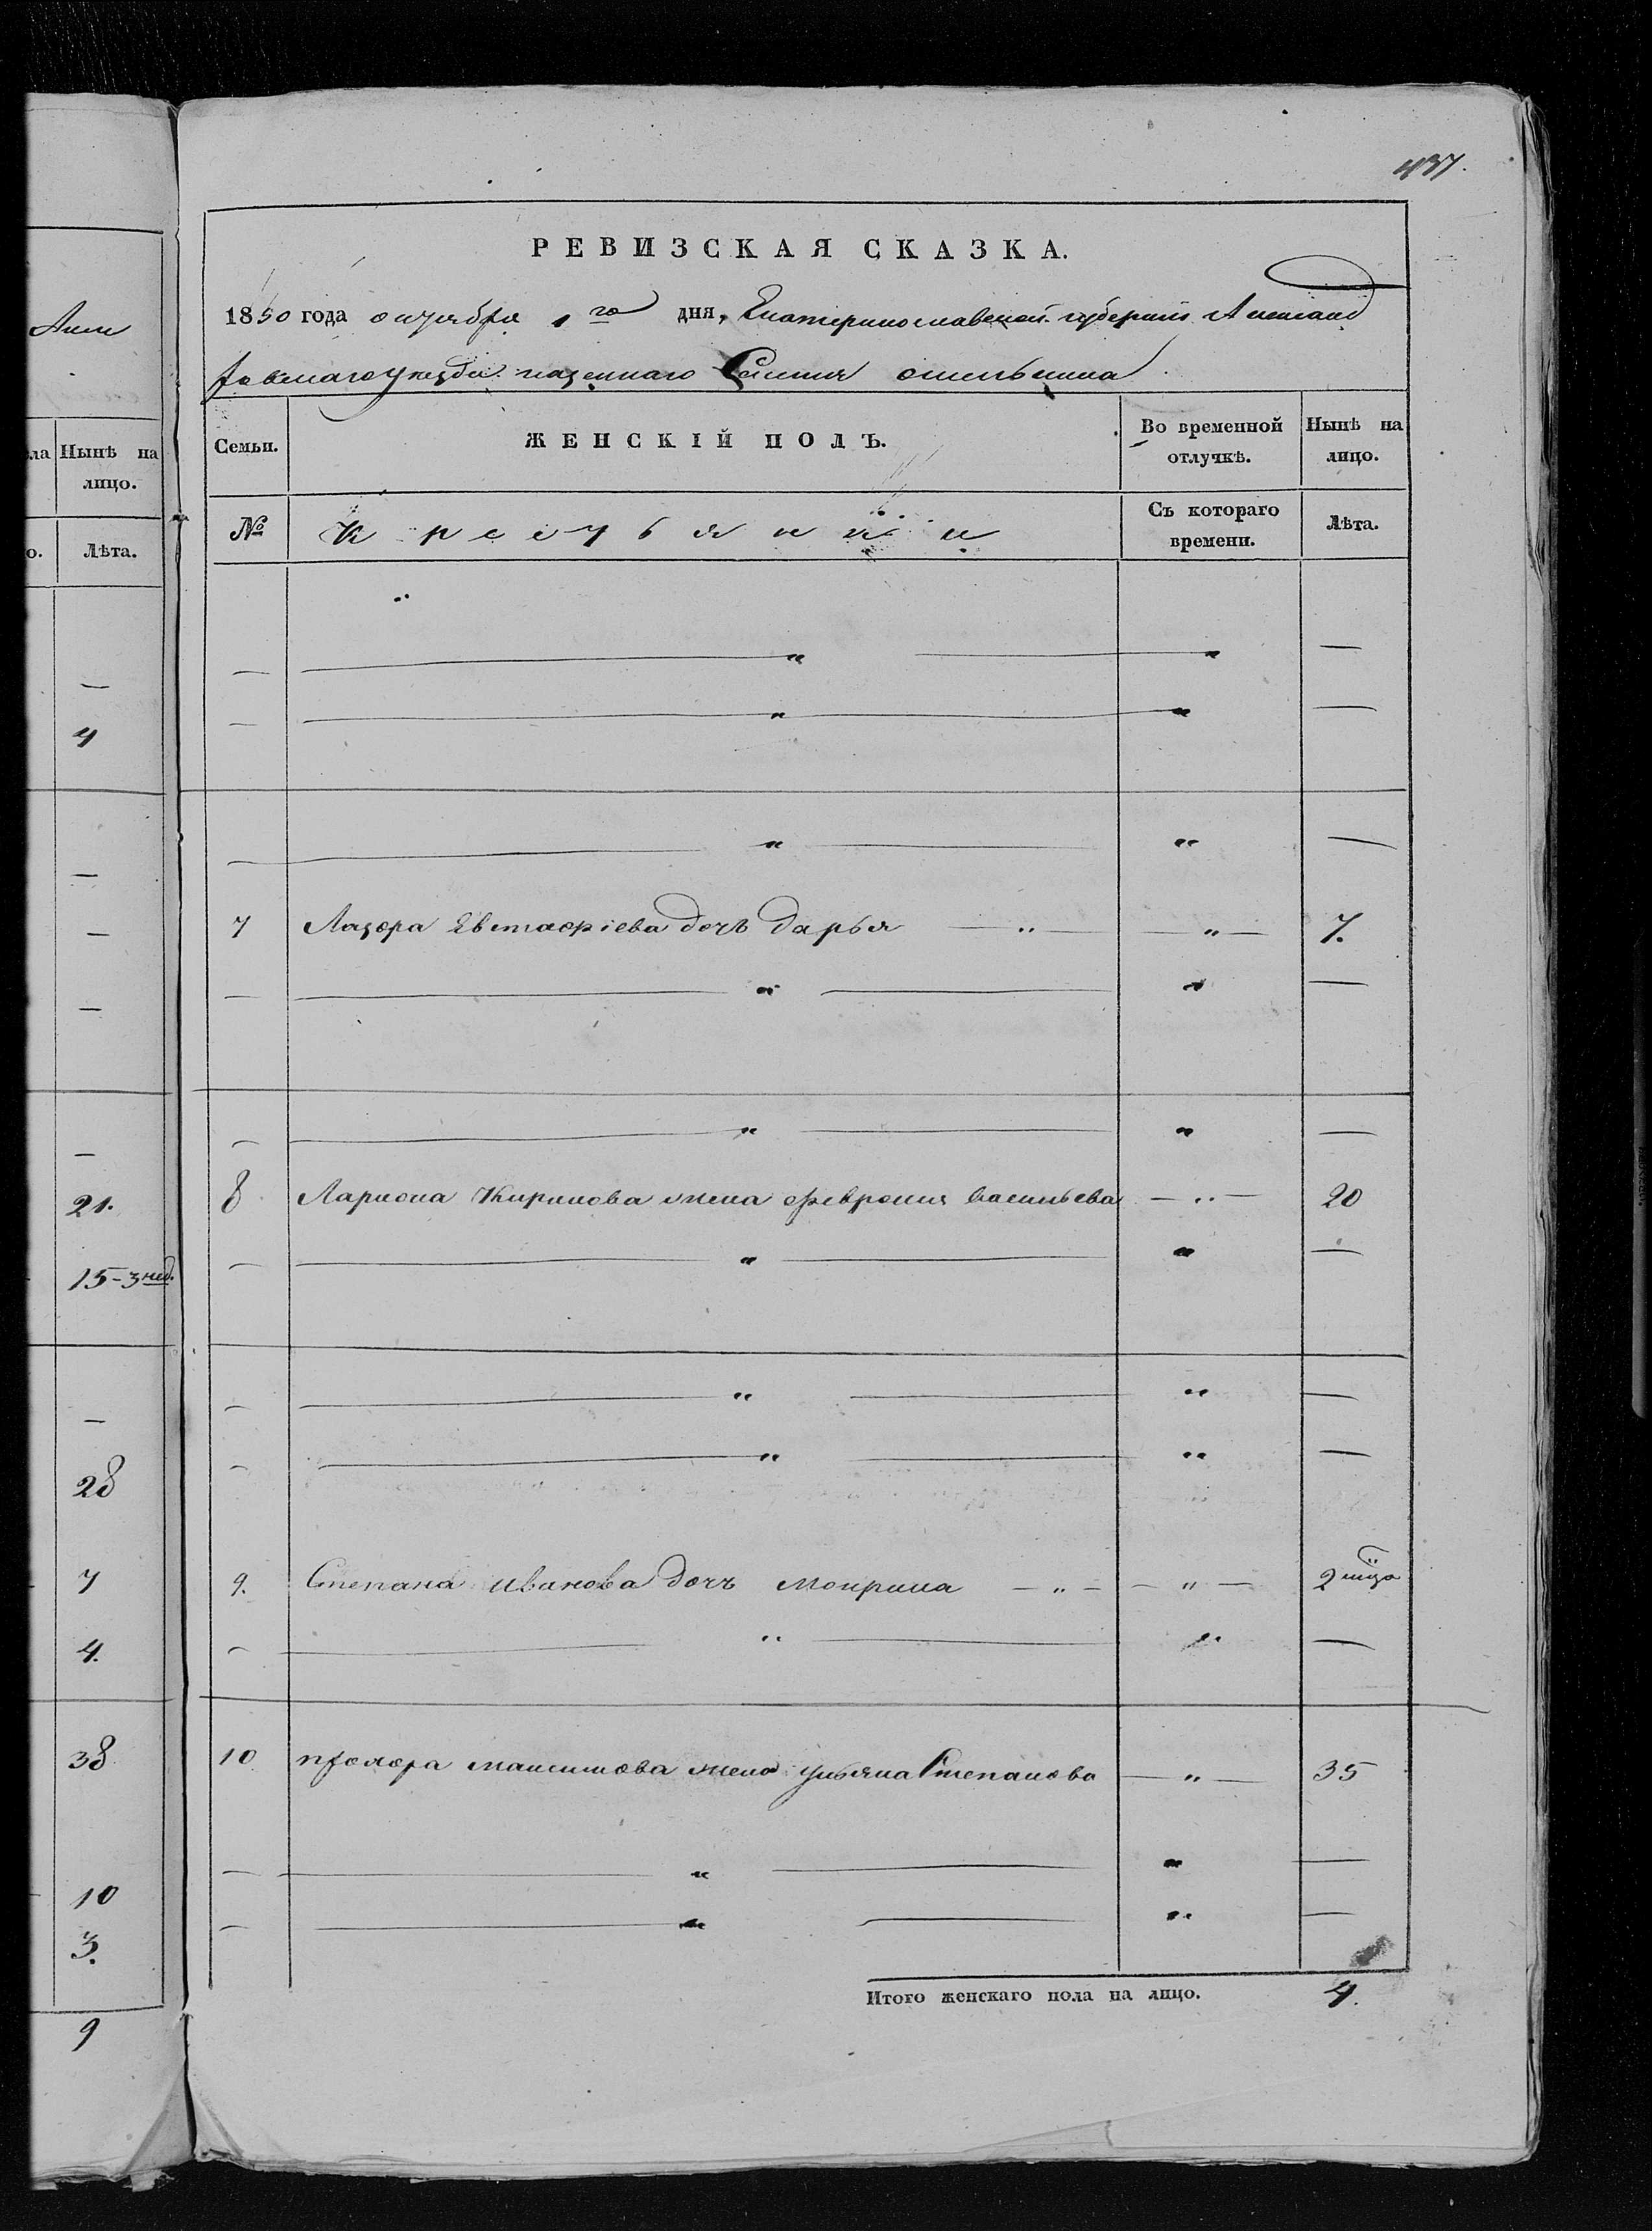 437.
РЕВИЗСКАЯ СКАЗКА.
1850 года октября 1го дня, Екатеринославской губерніи Александ
ровскаго уезда казеннаго Селенія
Семьи. ЖЕНСКІЙ ПОЛЪ. Во временной отлучкѣ. Нынѣ на лицо.
№ Крестьянки Съ котораго времени. Лѣта.
— — " — " —
— — " — " —
— — " — " —
7 Лазора Евстафіева дочь Дарья — " — " — 7.
— — " — " —
— — " — " —
8 Лариона Кирилова жена Феврония васильева — " — 20
— — " — " —
— — " — " —
— — " — " —
9. Степана иванова дочь мокрина — " — — " — 2 мѣца
— — " — " —
10 прохора максимова жена ульяна Степанова — " — 35
— — " — " —
— — " — " —
Итого женскаго пола на лицо. 4.
Нынѣ на
лицо.
Лѣта.
—
4
—
—
—
—
21.
15-3 нед.
—
28
7
4.
38
10
3.
9